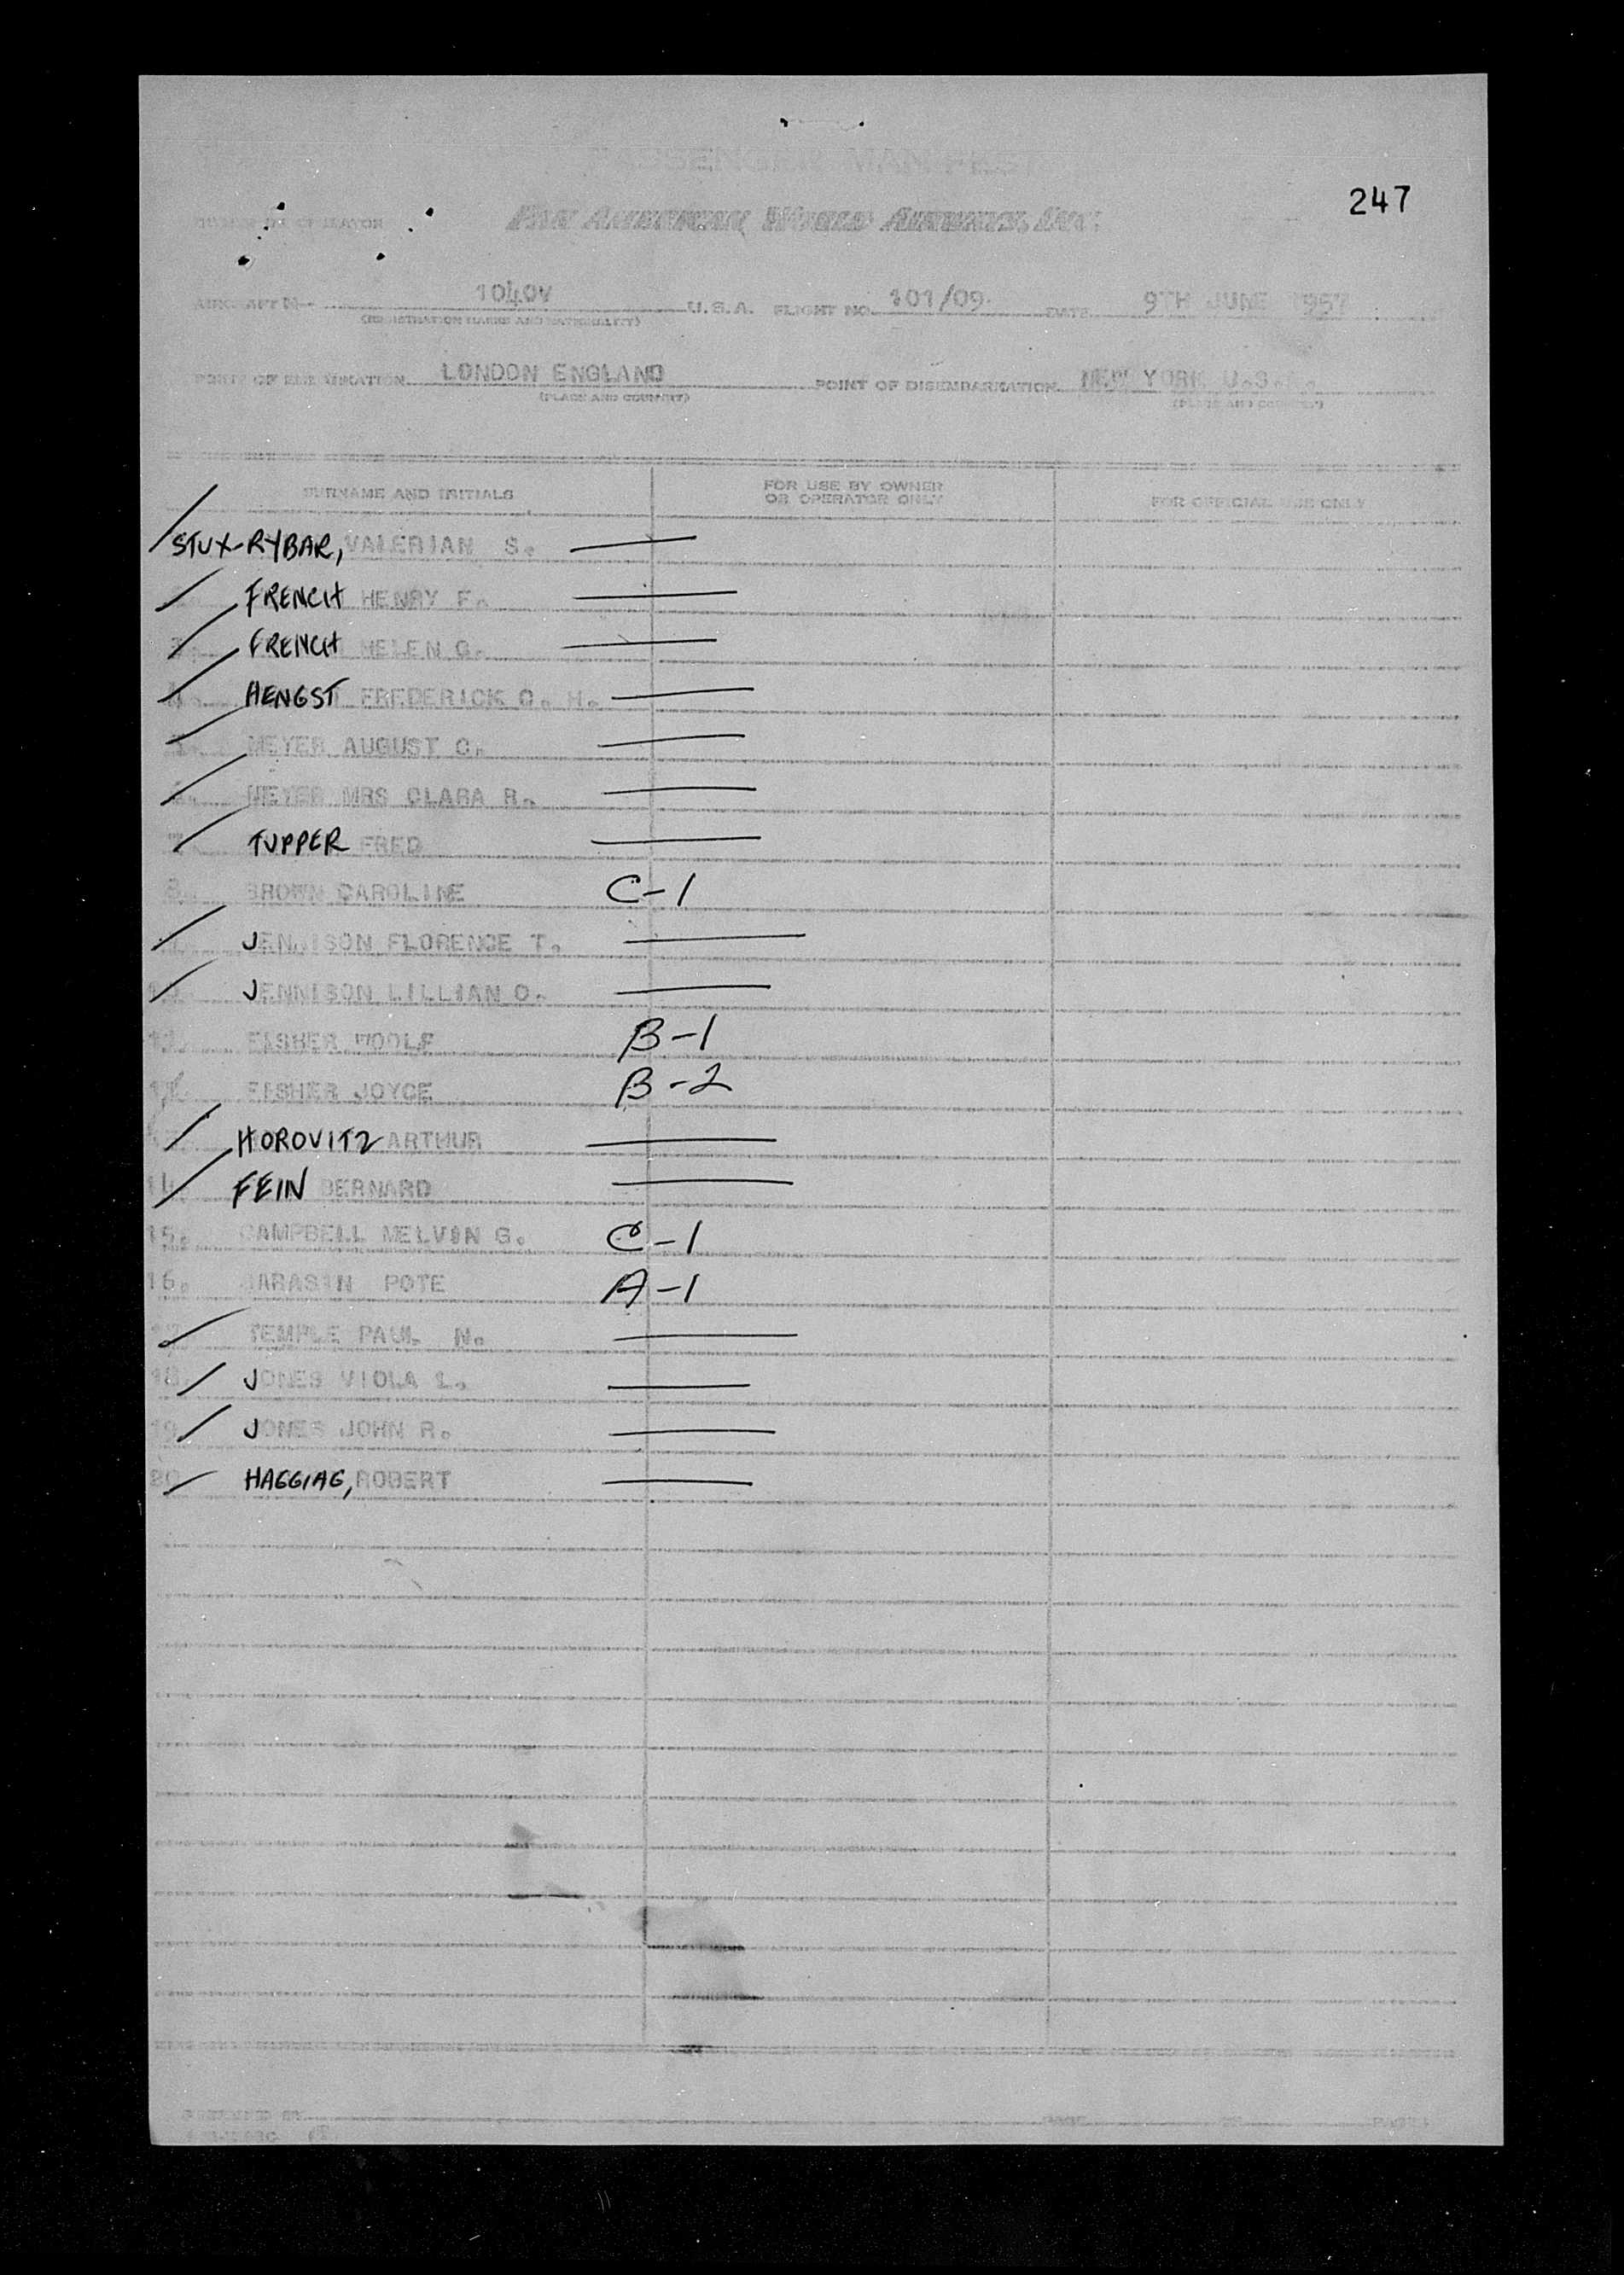 PASSENGER MANIFEST
247
OWNER OR OPERATOR PAN AMERICAN WORLD AIRWAYS, INC.
AIRCRAFT N 1040V U.S.A. FLIGHT NO. 101/09. DATE 9TH JUNE 1957
(REGISTRATION MARKS AND NATIONALITY)
POINT OF EMBARKATION LONDON ENGLAND POINT OF DISEMBARKATION NEW YORK U.S.A.
(PLACE AND COUNTRY) (PLACE AND COUNTRY)
SURNAME AND INITIALS FOR USE BY OWNER OR OPERATOR ONLY FOR OFFICIAL USE ONLY
STUX-RYBAR, VALERIAN S.
FRENCH HENRY F.
3. FRENCH HELEN G.
4. HENGST FREDERICK O. H.
MEYER AUGUST C.
MEYER MRS CLARA R.
7. TUPPER FRED
8. BROWN CAROLINE C-1
JENNISON FLORENCE T.
10. JENNISON LILLIAN O.
FISHER WOOLF B-1
FISHER JOYCE B-2
HOROVITZ ARTHUR
14. FEIN BERNARD
15. CAMPBELL MELVIN G. C-1
16. SARASIN POTE A-1
17. TEMPLE PAUL N.
18. JONES VIOLA L.
19. JONES JOHN R.
20. HAGGIAG, ROBERT
PREPARED BY PAGE OF PAGES